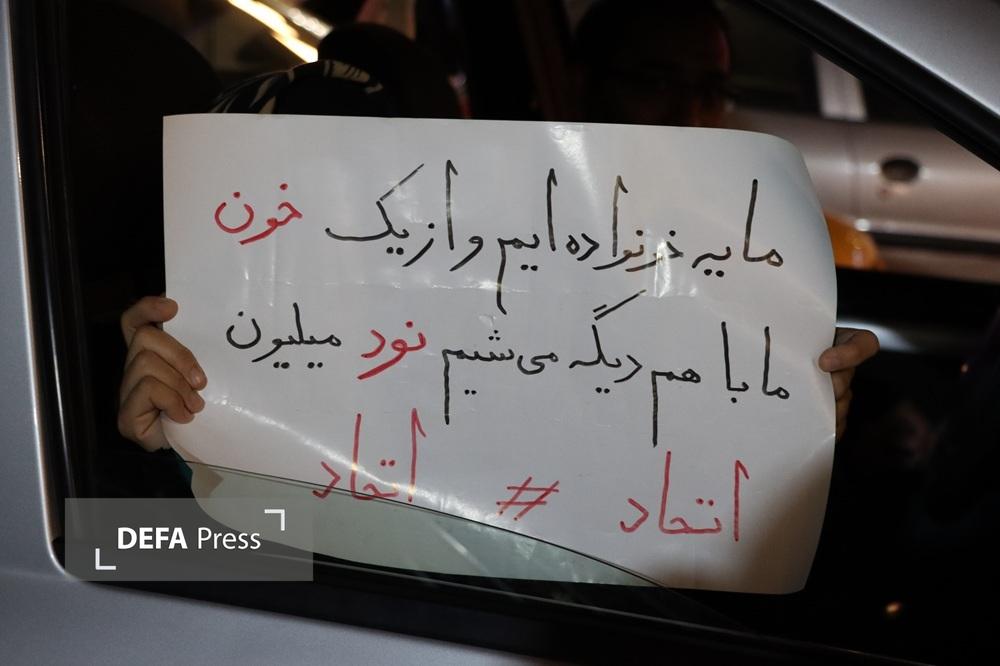 ما یه خونواده ایم و از یک خون
ما با هم دیگه می‌شیم نود میلیون
اتحاد # اتحاد
DEFA Press